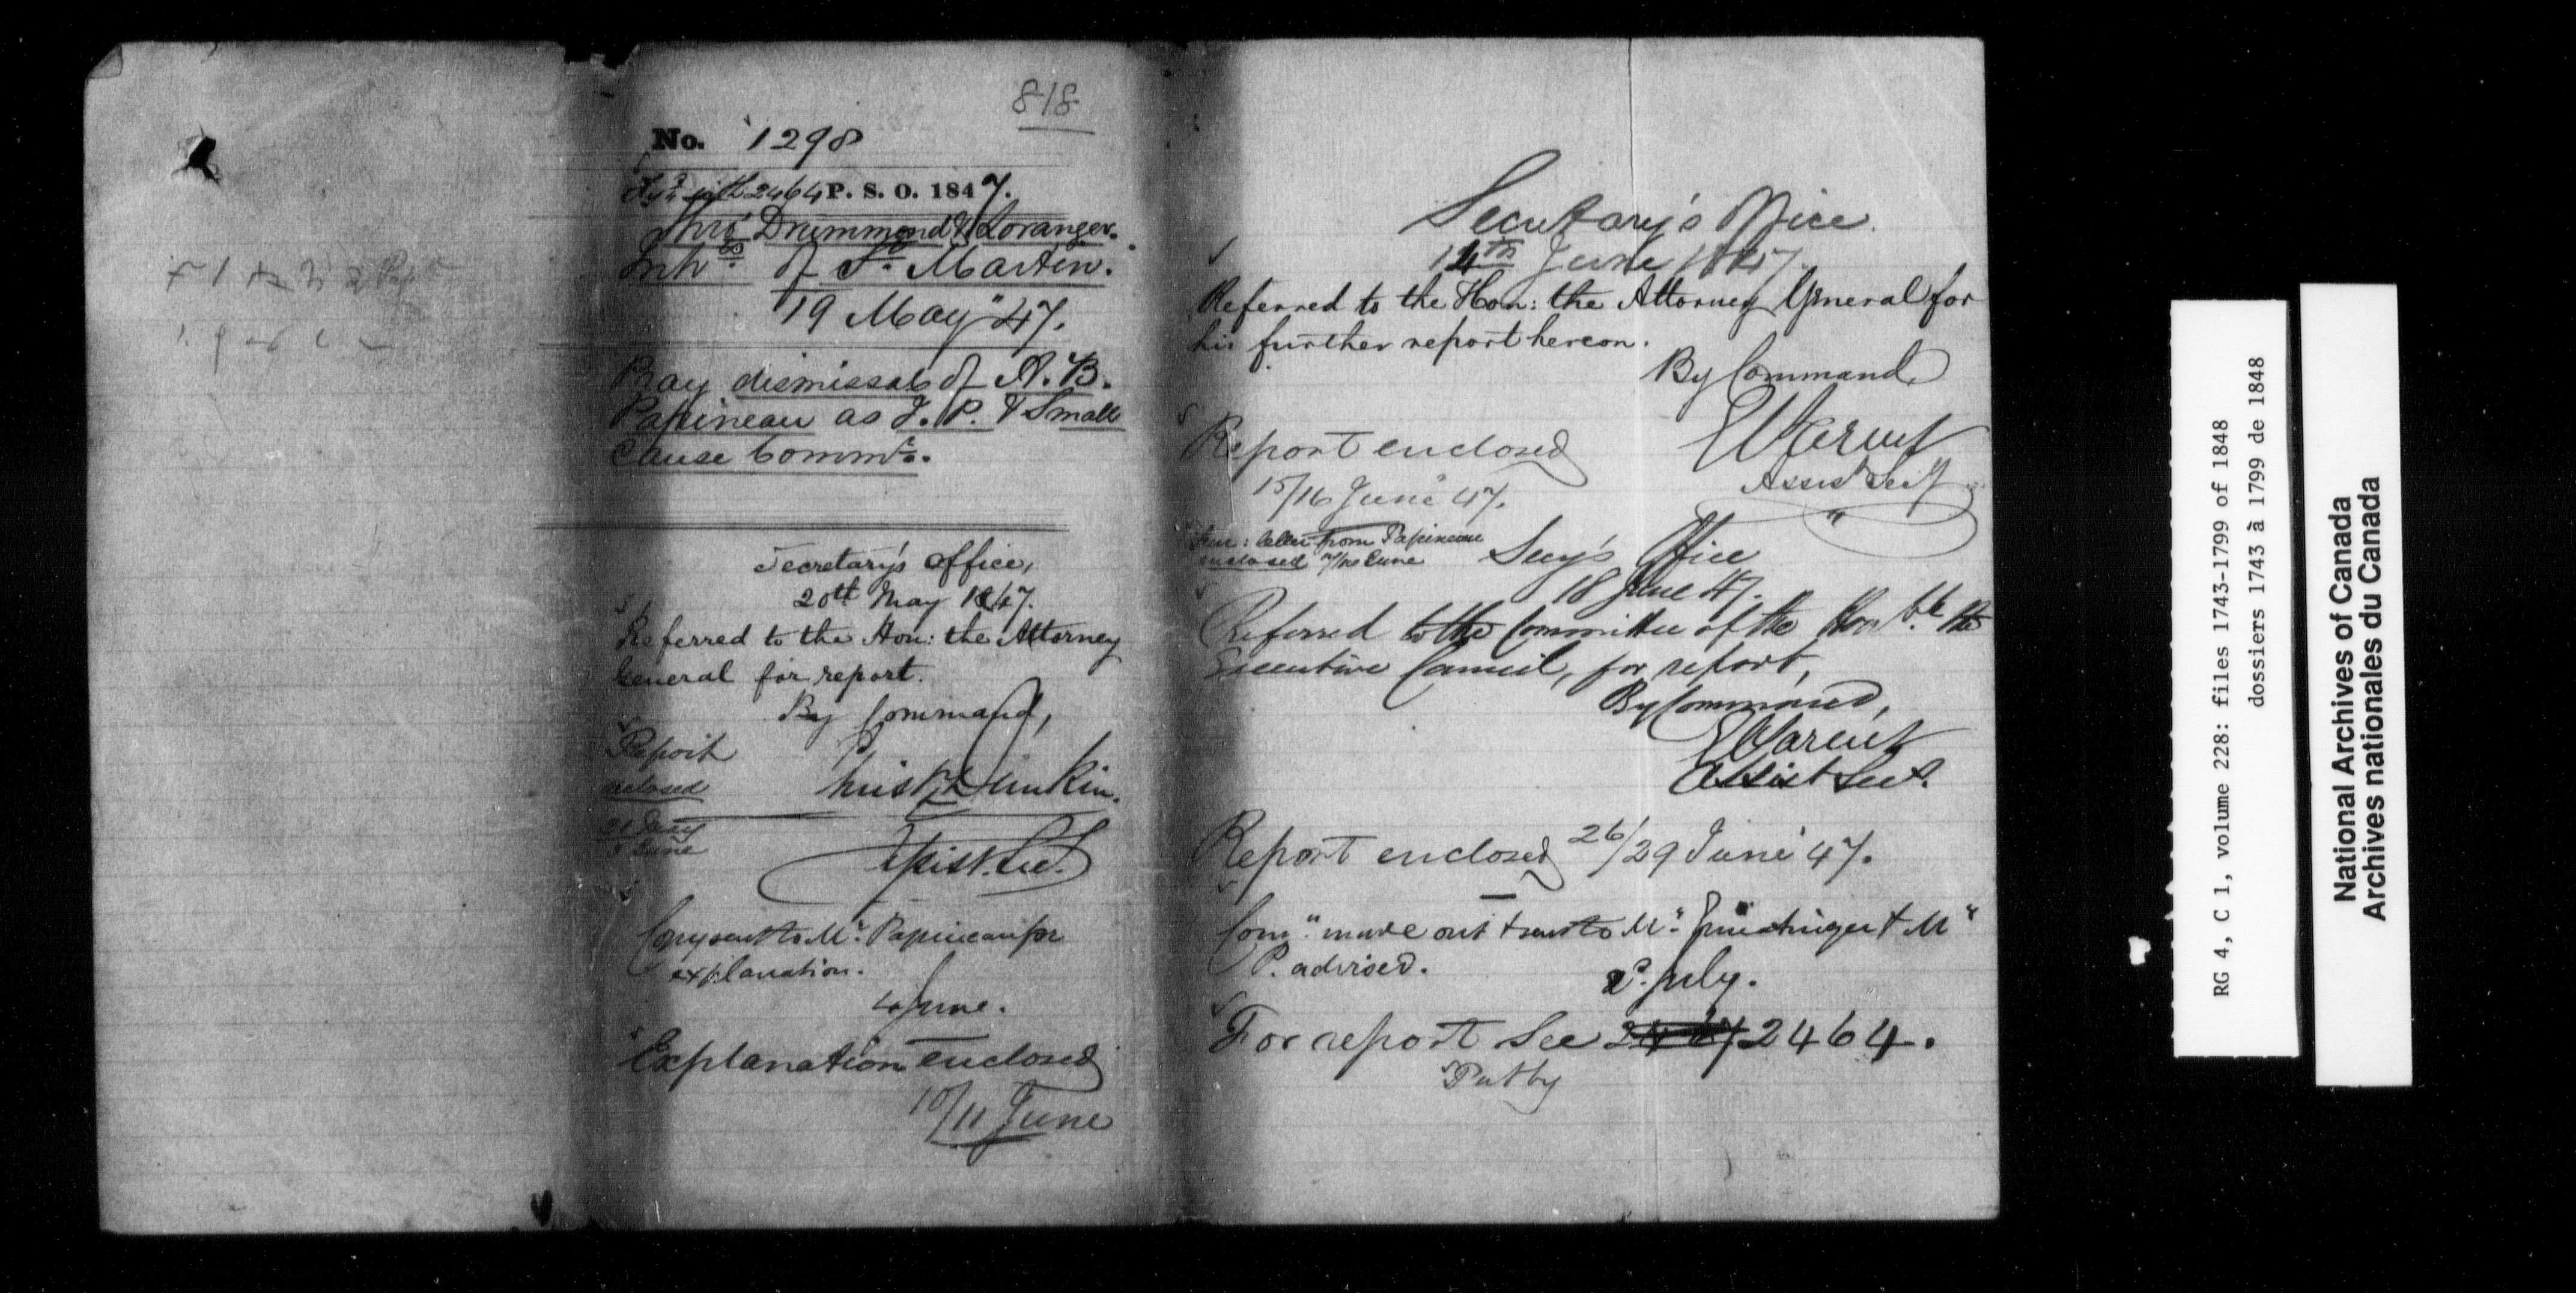 818
No. 1298
with 2464 P. S. O. 1847.
Thro' Drummond & Loranger.
Inhts of St. Martin.
19 May "47.
Pray dismissal of A. B.
Papineau as J. P. & Small
Cause Commr.
Secretary's Office,
20th May 1847.
Referred to the Hon: the Attorney
General for report.
By Command,
Report
enclosed
Christr Dunkin.
June
Assist. Sec.
Copy sent to Mr. Papineau for
explanation.
4 June.
Explanation enclosed
10/11 June
Secretary's Office.
14th June 1847.
Referred to the Hon: the Attorney General for
his further report hereon.
By Command
E Parent
Assist Secy
Report enclosed
15/16 June 47.
letter from Papineau
enclosed June
Secy's Office
18 June 47.
Referred to the Committee of the Honble the
Executive Council, for report,
By Command,
E Parent
Assist Sec.
Report enclosed 26/29 June 47.
Comn made out & sent to Mr. & Mr
P. advised.
2. July.
For report See 2464.
Put by
RG 4, C 1, volume 228: files 1743-1799 of 1848
dossiers 1743 à 1799 de 1848
National Archives of Canada
Archives nationales du Canada